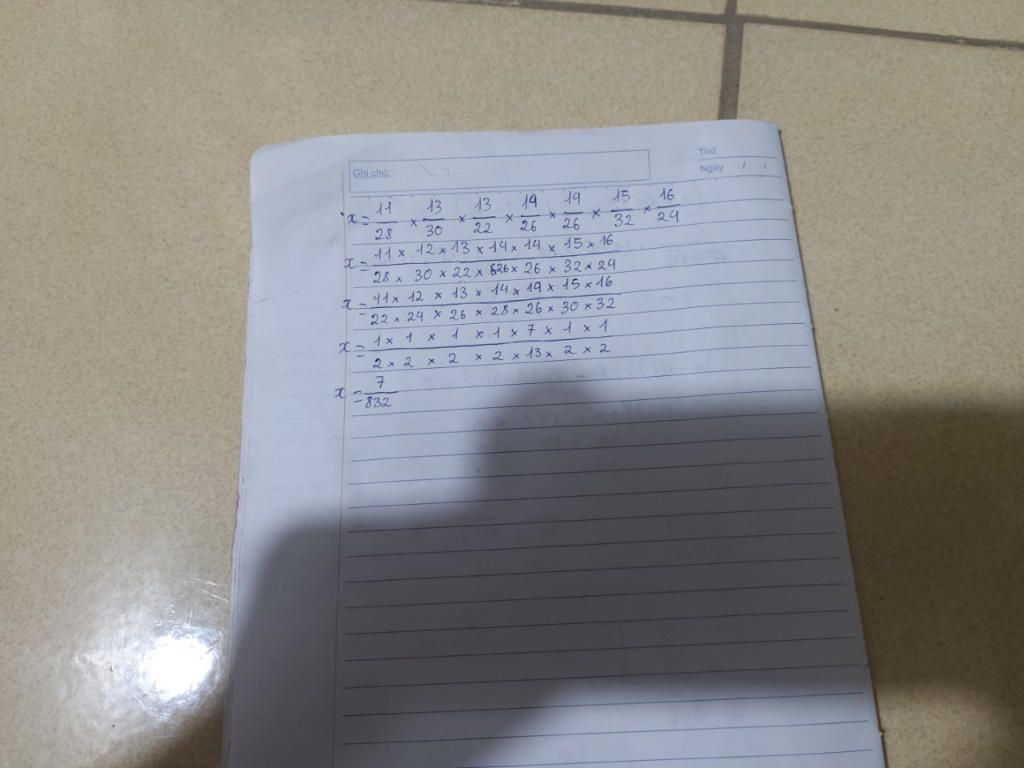 Ghi chú:
Thứ
Ngày / /
x = 11/28 × 13/30 × 13/22 × 14/26 × 14/26 × 15/32 × 16/24
x = 11 × 12 × 13 × 14 × 14 × 15 × 16 / 28 × 30 × 22 × 26 × 26 × 32 × 24
x = 11 × 12 × 13 × 14 × 14 × 15 × 16 / 22 × 24 × 26 × 28 × 26 × 30 × 32
x = 1 × 1 × 1 × 1 × 7 × 1 × 1 / 2 × 2 × 2 × 2 × 13 × 2 × 2
x = 7/832